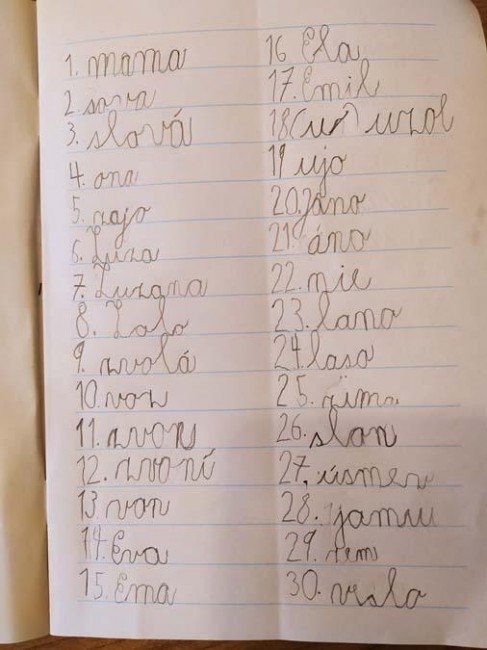 1. mama
2. sova
3. slová
4. ona
5. zajo
6. Zuza
7. Zuzana
8. Lolo
9. zvolá
10. voz
11. zvon
12. zvoní
13. von
14. Eva
15. Ema
16 Ela
17. Emil
18 (uz) uzol
19 ujo
20. Jano
21. áno
22. nie
23. lano
24 laso
25. zima
26. slon
27. úsmev
28. jamu
29. sem
30. veslo